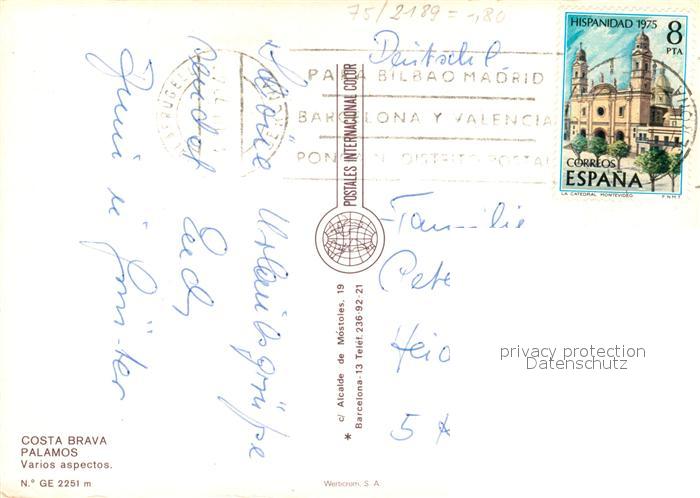 75/2189 = 1,80
HISPANIDAD 1975
8
PTA
CORREOS
ESPAÑA
LA CATEDRAL MONTEVIDEO
F.N.M.T.
PARA BILBAO MADRID
BARCELONA Y VALENCIA
DISTRITO POSTAL
Schöne Urlaubsgrüße
sendet
Euch
POSTALES INTERNACIONAL COLOR
c/ Alcalde de Móstoles, 19
Barcelona-13 Teléf. 236-92-21
Familie
privacy protection
Datenschutz
COSTA BRAVA
PALAMOS
Varios aspectos.
N.º GE 2251 m
Werticrom, S. A.